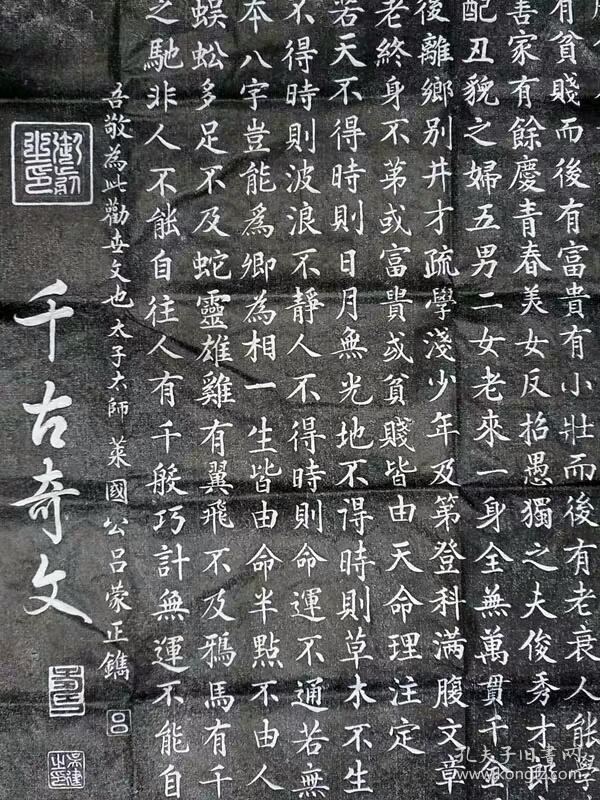 有貧賤而後有富貴有小壯而後有老衰人能學
善家有餘慶青春美女反招愚獨之夫俊秀才郎
配丑貌之婦五男二女老來一身全無萬貫千金
後離鄉別井才疏學淺少年及第登科滿腹文章
老終身不第或富貴或貧賤皆由天命理注定
若天不得時則日月無光地不得時則草木不生
不得時則波浪不靜人不得時則命運不通若無
本八字豈能爲卿為相一生皆由命半點不由人
蜈蚣多足不及蛇靈雄雞有翼飛不及鴉馬有千
之馳非人不能自往人有千般巧計無運不能自
吾敬為此勸世文也太子太師萊國公呂蒙正鐫
呂
千古奇文
孔夫子旧書网
www.kongfz.com